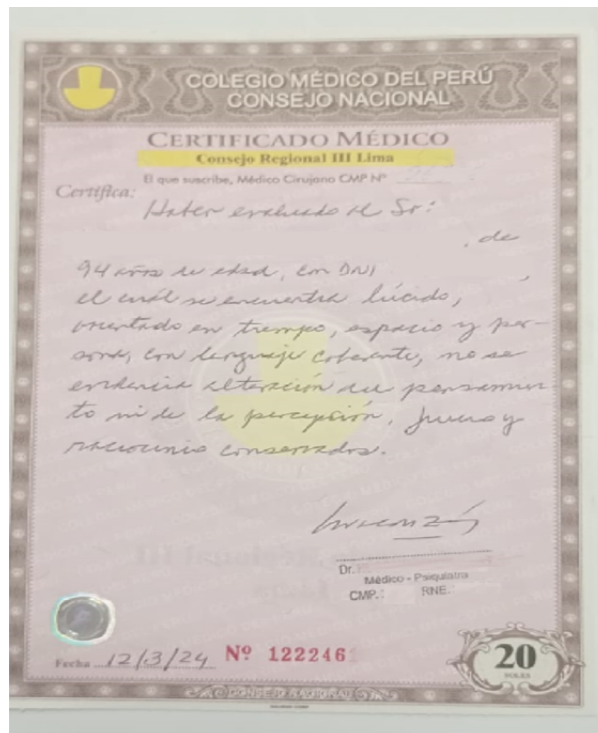 COLEGIO MÉDICO DEL PERÚ
CONSEJO NACIONAL
CERTIFICADO MÉDICO
Consejo Regional III Lima
El que suscribe, Médico Cirujano CMP Nº
Certifica:
Haber evaluado al Sr:
, de
94 años de edad, con DNI
el cuál se encuentra lúcido,
orientado en tiempo, espacio y per-
sona, con lenguaje coherente, no se
evidencia alteración del pensamien-
to ni de la percepción, juicio y
raciocinio conservados.
Dr.
Médico - Psiquiatra
CMP.: RNE.
Fecha 12/3/24 Nº 122246
20
SOLES
CONSEJO NACIONAL